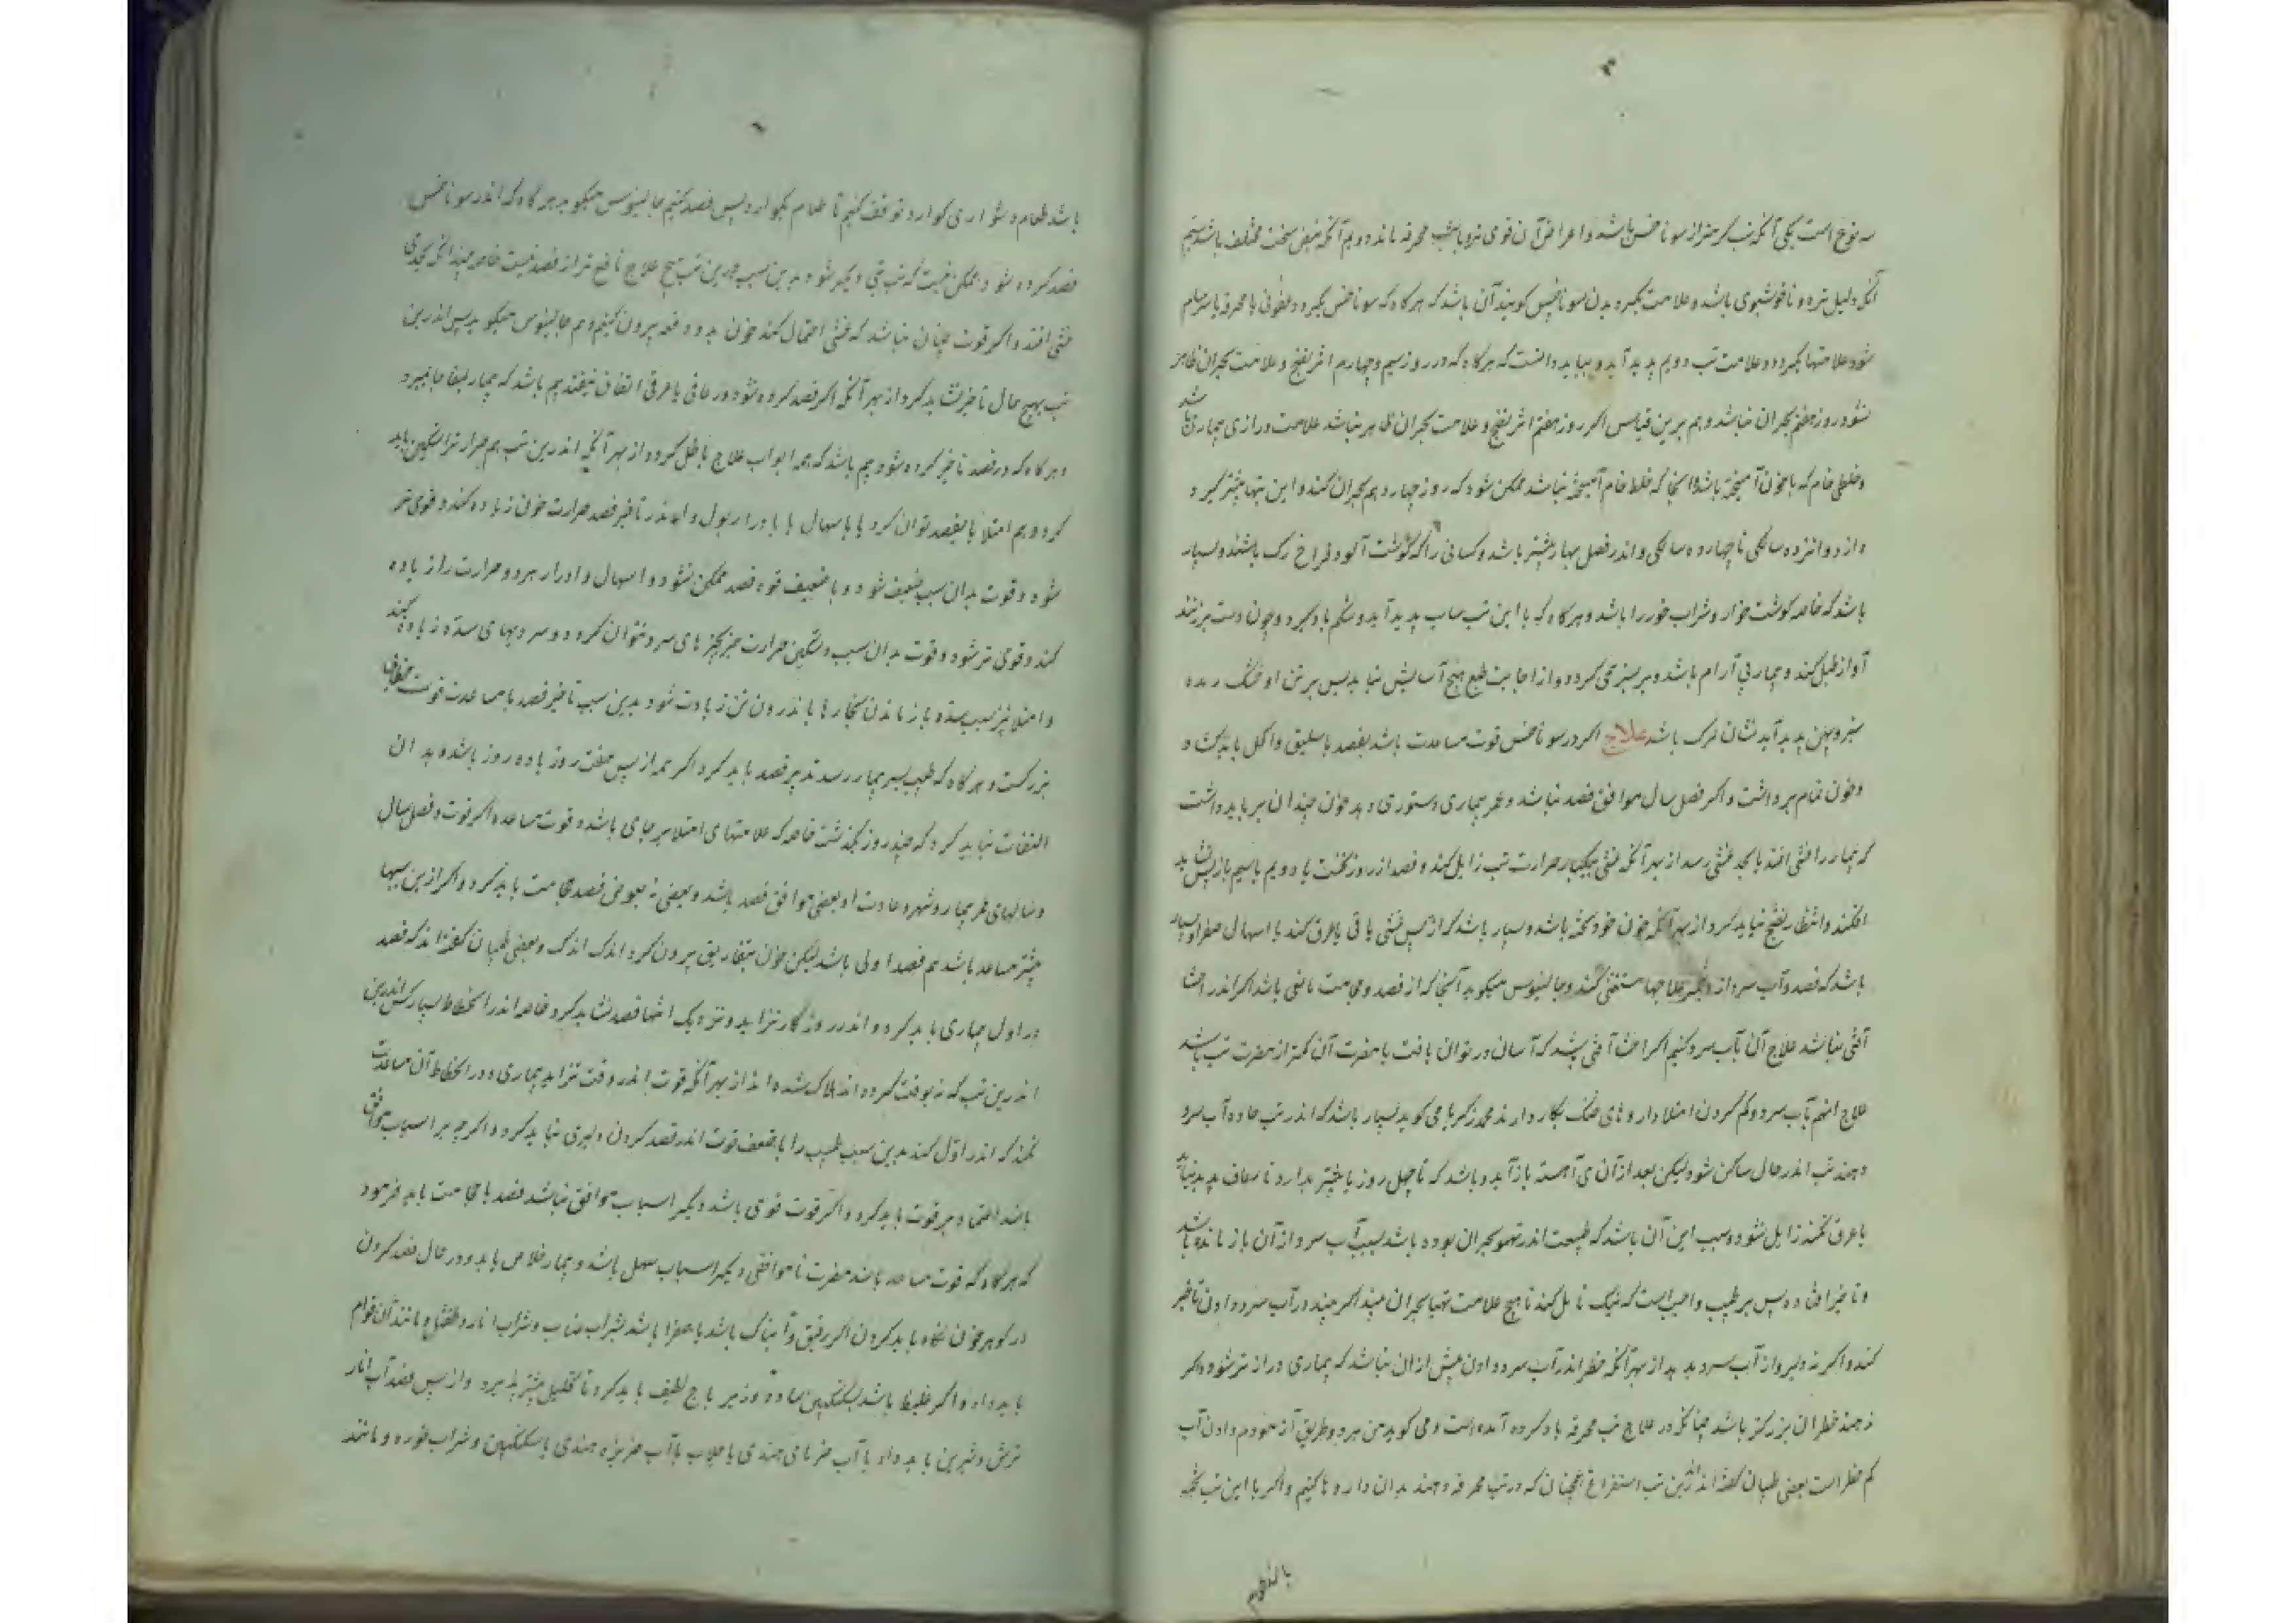 سه نوع است یکی آنکه تب گرمتر از سونا خس باشد و اعراض آن قوی تر و با تب محرقه ماند دویم آنکه نبض سخت مختلف باشد سیم
آنکه دلیل تیره و ناخوشبوی باشد و علامت بگیرد بدن سوناخس گویند آن باشد که هرگاه که سوناخس بگیرد و عفونی یا محرقه یا سرسام
شود علامتها بگیرد و علامت تب دویم پدید آید و بباید دانست که هرگاه که در روز سیم و چهارم اثر نضج و علامت بحران ظاهر
نشود روز هفتم بحران نباشد و هم برین قیاس اگر روز هفتم اثر نضج و علامت بحران ظاهر نباشد علامت درازی بیماری باشد
و خلطی خام که با خون آمیخته باشد و آنجا که خلط خام آمیخته نباشد ممکن شود که روز چهاردهم بحران کند و این تبها بیشتر گیرد
از دوانزده سالگی تا چهارده سالگی و اندر فصل بهار بیشتر باشد و کسانی را که گوشت آلود و فراخ رگ باشند و بسیار
باشد که خاصه گوشت خوار و شراب خور را باشد و هرگاه که با این تب سبات پدید آید و شکم باد گیرد و چون دست برزنند
آواز طبل کند و بیمار بی آرام باشد و بر بستر می گردد و از اجابت طبع هیچ آسایش نیابد پس بر تن او خشک ریده
سبز و پهن پدید آید نشان مرگ باشد علاج اگر در سوناخس قوت مساعدت باشد بفصد باسلیق و اکحل باید گشاد
و خون تمام برداشت و اگر فصل سال موافق فصد نباشد و عمر بیماری دستوری دهد خون چندان بر باید داشت
که بیمار را غشی افتد یا بحد غشی رسد از بهر آنکه غشی بیکبار حرارت تب زایل کند و فصد از روز نخست یا دویم یا سیم باز پس نشاید
افکند و انتظار نضج نباید کرد از بهر آنکه خون خود پخته باشد و بسیار باشد که از پس غشی یا قی یا عرق کند یا اسهال صفرا و بسیار
باشد که فصد و آب سرد از دیگر علاجها مستغنی کند و جالینوس میگوید آنجا که از فصد و حجامت مانعی باشد اگر اندر احشا
آفتی نباشد علاج آن بآب سرد کنیم اگر احشا آفتی بیند که آسان در توان یافت یا مضرت آن کمتر از مضرت تب باشد
علاج او هم بآب سرد و کم کردن امتلا داروهای خنک بکار دارند محمد زکریا می گوید بسیار باشد که اندر تب حاده آب سرد
دهند تب اندر حال ساکن شود لیکن بعد از آن آهسته باز آید و باشد که تا چهل روز یا بیشتر بدارد تا رعاف پدید نیاید
یا عرق نکند زایل نشود و سبب این آن باشد که طبیعت اندر تهیو بحران بوده باشد بسبب آب سرد از آن باز مانده باشد
و تاخیر افتاده پس بر طبیب واجب است که نیک تامل کند تا هیچ علامت تهیا بحران بیند اگر چند در آب سرد دادن تاخیر
کند و اگر نه دلیروار آب سرد بدهد از بهر آنکه خطر اندر آب سرد دادن بیش از آن نباشد که بیماری درازتر شود و اگر
ندهند خطر آن بزرگتر باشد چنانکه در علاج تب محرقه یاد کرده آمده است و می گوید من هر دو طریق آزمودم دادن آب
کم خطر است بعضی طبیبان گفته اند اندرین تب استفراغ همچنان که در تب محرقه دهند بدان داروها کنیم و اگر با این تب تخمه
با لطعام
باشد طعام دشواری گوارد توقف کنیم تا طعام بگوارد پس فصد کنیم جالینوس میگوید هرگاه که اندر سوناخس
فصد کرده شود ممکن نیست که تب دیگر شود بدین سبب درین تب هیچ علاج نافع تر از فصد نیست خاصه چندانکه بحدی
غشی افتد و اگر قوت چنان نباشد که غشی احتمال کند خون بدو دفعه بیرون کنیم و هم جالینوس میگوید پس اندرین
تب بهیچ حال تاخیر نشاید کرد از بهر آنکه اگر فصد کرده نشود و رعافی یا عرقی اتفاق نیفتد بیم باشد که بیمار بمفاجا بمیرد
و هرگاه که در فصد تاخیر کرده شود بیم باشد که همه ابواب علاج باطل گردد از بهر آنکه اندرین تب هم حرارت را تسکین باید
کرد و هم امتلا یا بفصد توان کرد یا باسهال یا بادرار بول و اندر تاخیر فصد حرارت خون زیاده کند و قوی تر
شود و قوت بدان سبب ضعیف شود و با ضعیف قوه فصد ممکن نشود و اسهال و ادرار هر دو حرارت را زیاده
کند و قوی تر شود و قوت بدان سبب و تسکین حرارت جز بچیزهای سرد نتوان کرد و سردیهای سده زیاده کند
و امتلا نیز بسبب سده باز ماندن بخارها باندرون تن زیادت شود بدین سبب تاخیر فصد با مساعدت قوت خطای
بزرگست و هرگاه که طبیب بسر بیمار رسد تدبیر فصد باید کرد اگر همه از پس هفت روز یا ده روز باشد و بدان
التفات نباید کرد که چند روز بگذشت خاصه که علامتهای امتلا بر جای باشد و قوت مساعد و اگر قوت و فصل سال
و سالهای عمر بیمار و شهر و عادت او بعضی موافق فصد باشد و بعضی نه بعوض فصد حجامت باید کرد و اگر ازین سببها
بیشتر مساعد باشد هم فصد اولی باشد لیکن خون بتفاریق بیرون کرد اندک اندک و بعضی طبیبان گفته اند که فصد
در اول بیماری باید کرد و اندر روزگار تزاید و نزدیک انتها فصد نشاید کرد خاصه اندر انحطاط بسیار کس اندرین
اندرین تب که نه بوقت کرده اند هلاک شده اند از بهر آنکه قوت اندر وقت تزاید بیماری و در انحطاط آن مساعدت
نکند که اندر اول کند بدین سبب طبیب را با ضعف قوت اندر فصد کردن دلیری نباید کرد و اگر چه بر اسباب موافق
باشد اعتماد بر قوت باید کرد و اگر قوت قوی باشد و دیگر اسباب موافق نباشد فصد یا حجامت باید فرمود
که هرگاه که قوت مساعد باشد مضرت ناموافقی دیگر اسباب سهل باشد و بیمار خلاص یابد و در حال فصد کردن
در گوهر خون نگاه باید کردن اگر رقیق و آبناک باشد یا صفرا باشد بشراب عناب و شراب انار و طفشل و مانند آن قوام
باید داد و اگر غلیظ باشد بسکنگبین ساده و زیرباج لطیف باید کرد تا تحلیل بیشتر پذیرد و از پس فصد آب انار
ترش و شیرین باید داد یا آب خرمای هندی یا جلاب یا آب خربزه هندی یا سکنگبین و شراب غوره و مانند